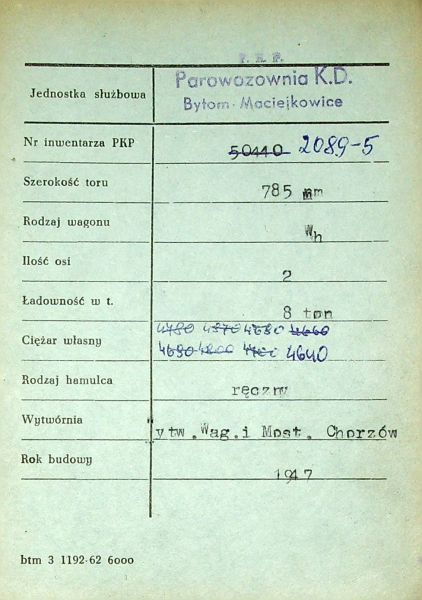 P. K. P.
Parowozownia K.D.
Jednostka służbowa Bytom-Maciejkowice
Nr inwentarza PKP 50440 2089-5
Szerokość toru 785 mm
Rodzaj wagonu Wh
Ilość osi 2
Ładowność w t. 8 ton
4780 4870 4680 4660
Ciężar własny 4690 4800 4700 4640
Rodzaj hamulca ręczny
Wytwórnia Wytw. Wag. i Most. Chorzów
Rok budowy 1947
btm 3 1192-62 6000